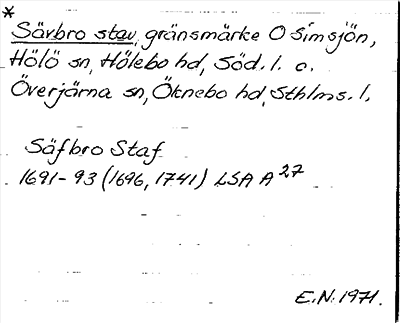 *
Sävbro stav, gränsmärke O Simsjön,
Hölö sn, Hölebo hd, Söd. l. o.
Överjärna sn, Öknebo hd, Sthlms. l.
Säfbro Staf
1691-93 (1696, 1741) LSA A 27
E.N. 1971.